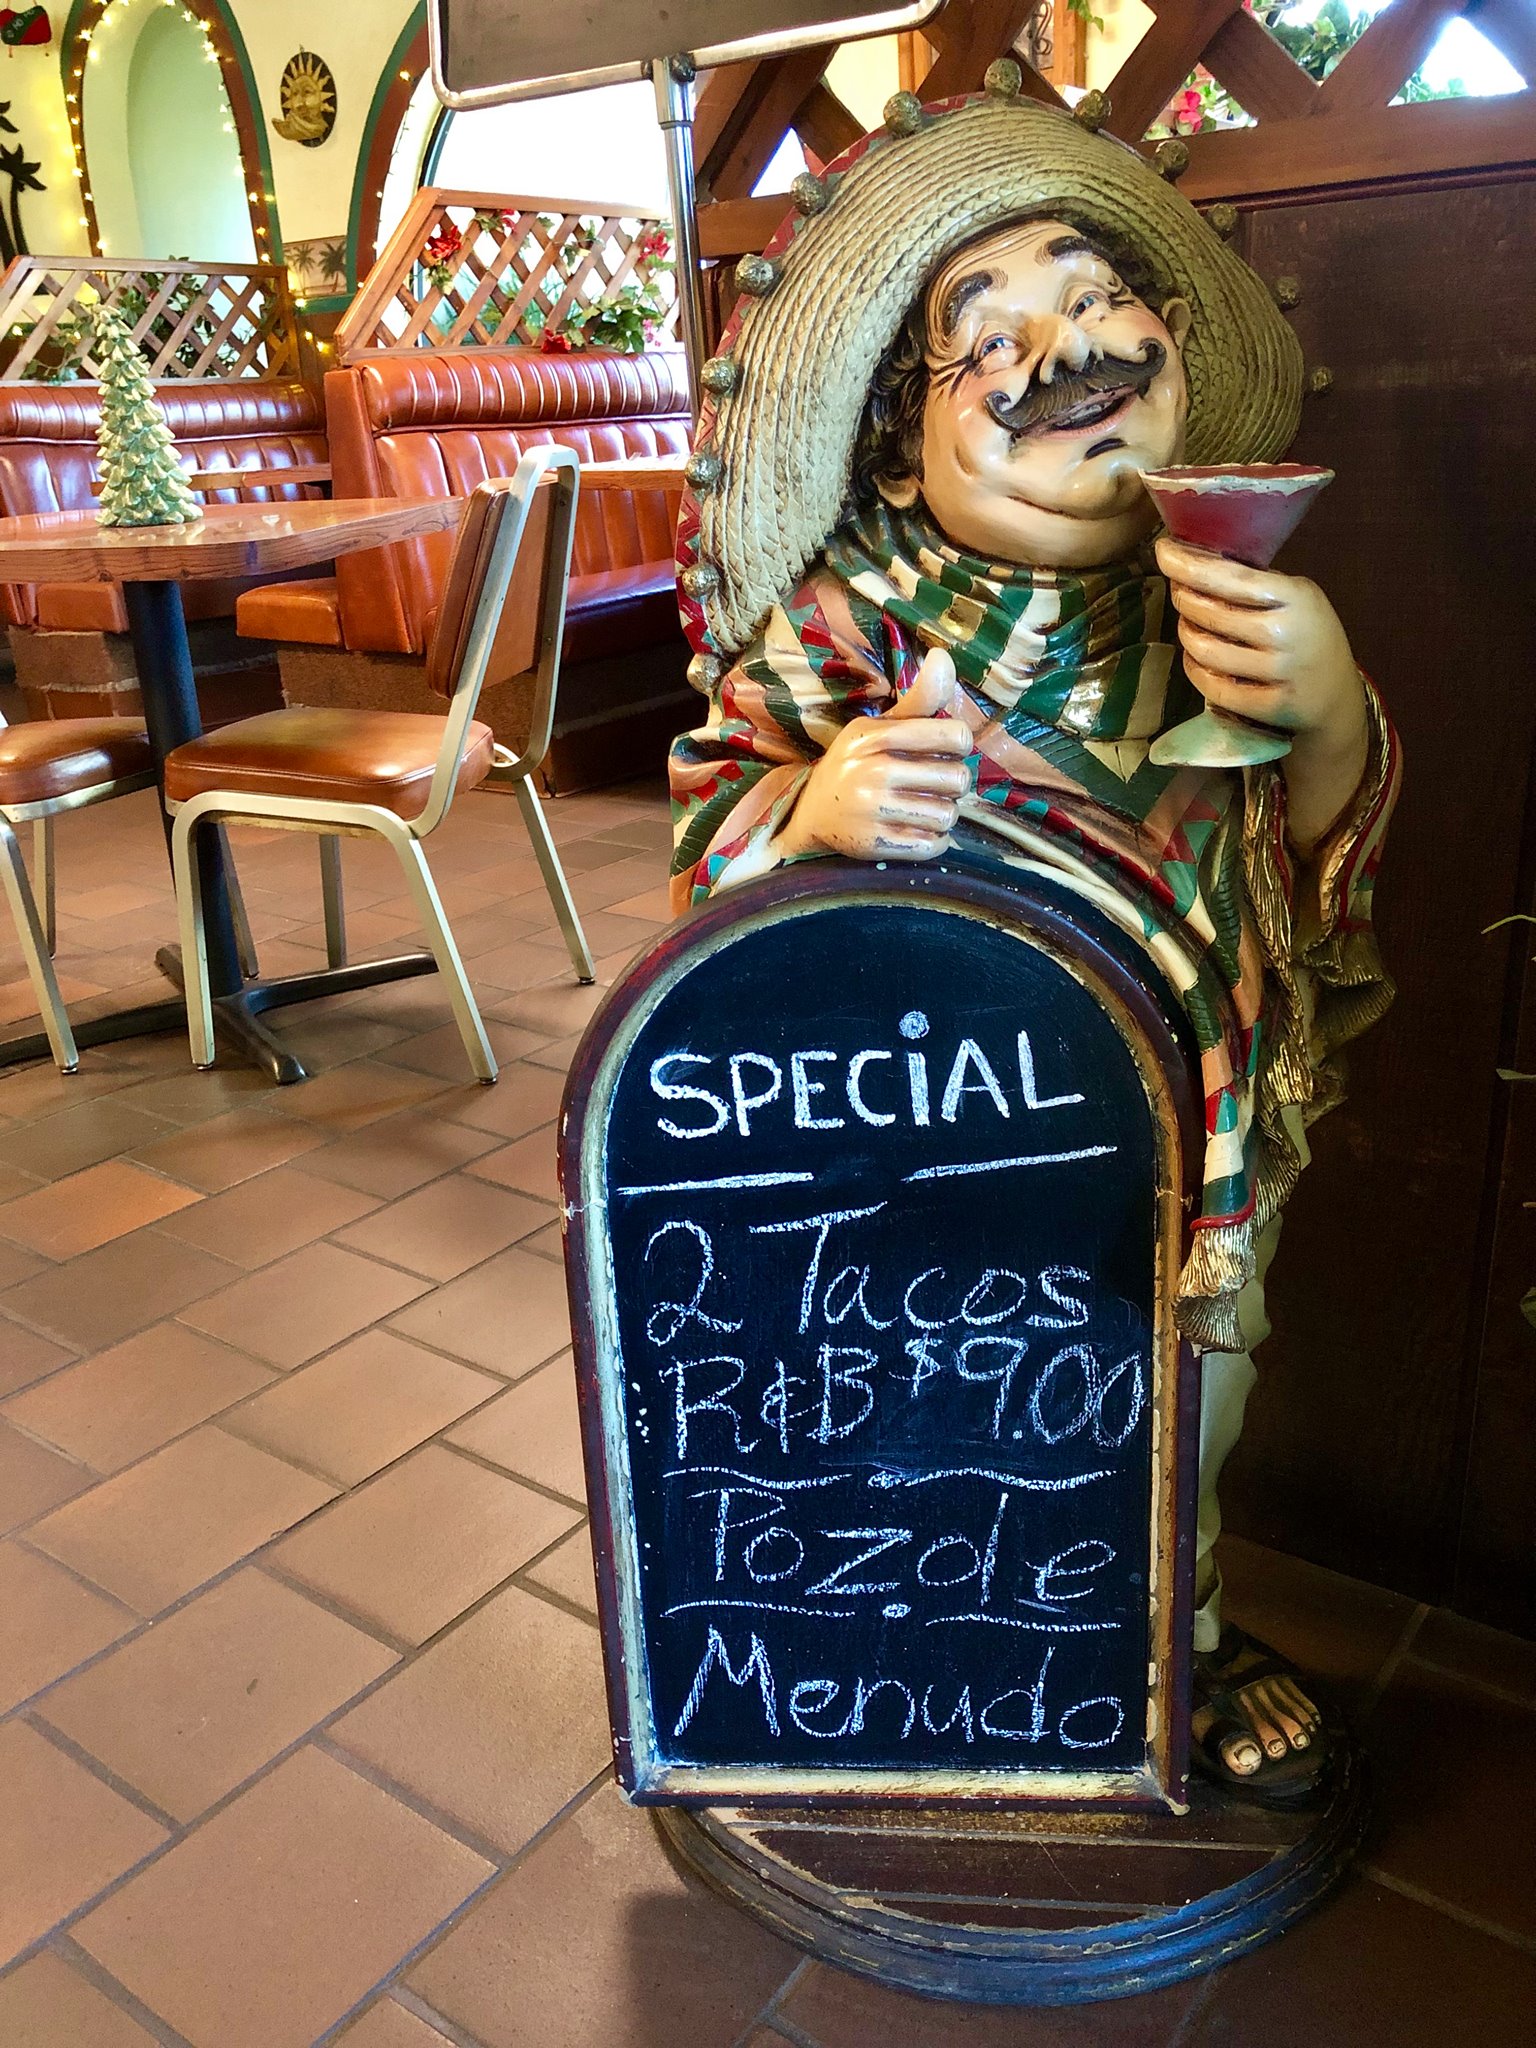 SPECiAL
2 Tacos
R&B $9.00
Pozole
Menudo